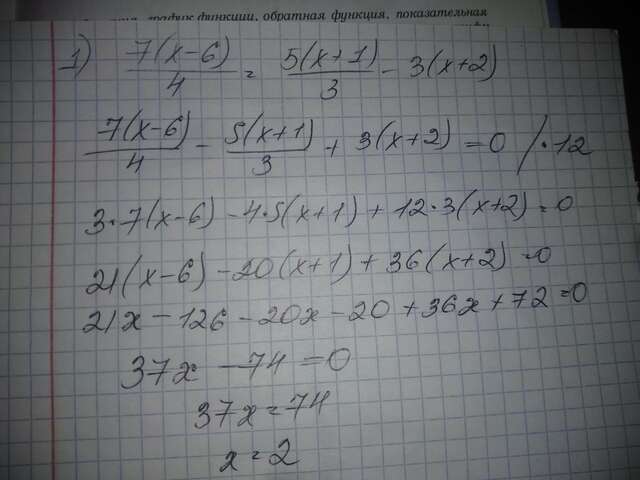 график функции, обратная функция, показательная
1) 7(x-6)/4 = 5(x+1)/3 - 3(x+2)
7(x-6)/4 - 5(x+1)/3 + 3(x+2) = 0 /·12
3·7(x-6) - 4·5(x+1) + 12·3(x+2) = 0
21(x-6) - 20(x+1) + 36(x+2) = 0
21x - 126 - 20x - 20 + 36x + 72 = 0
37x - 74 = 0
37x = 74
x = 2